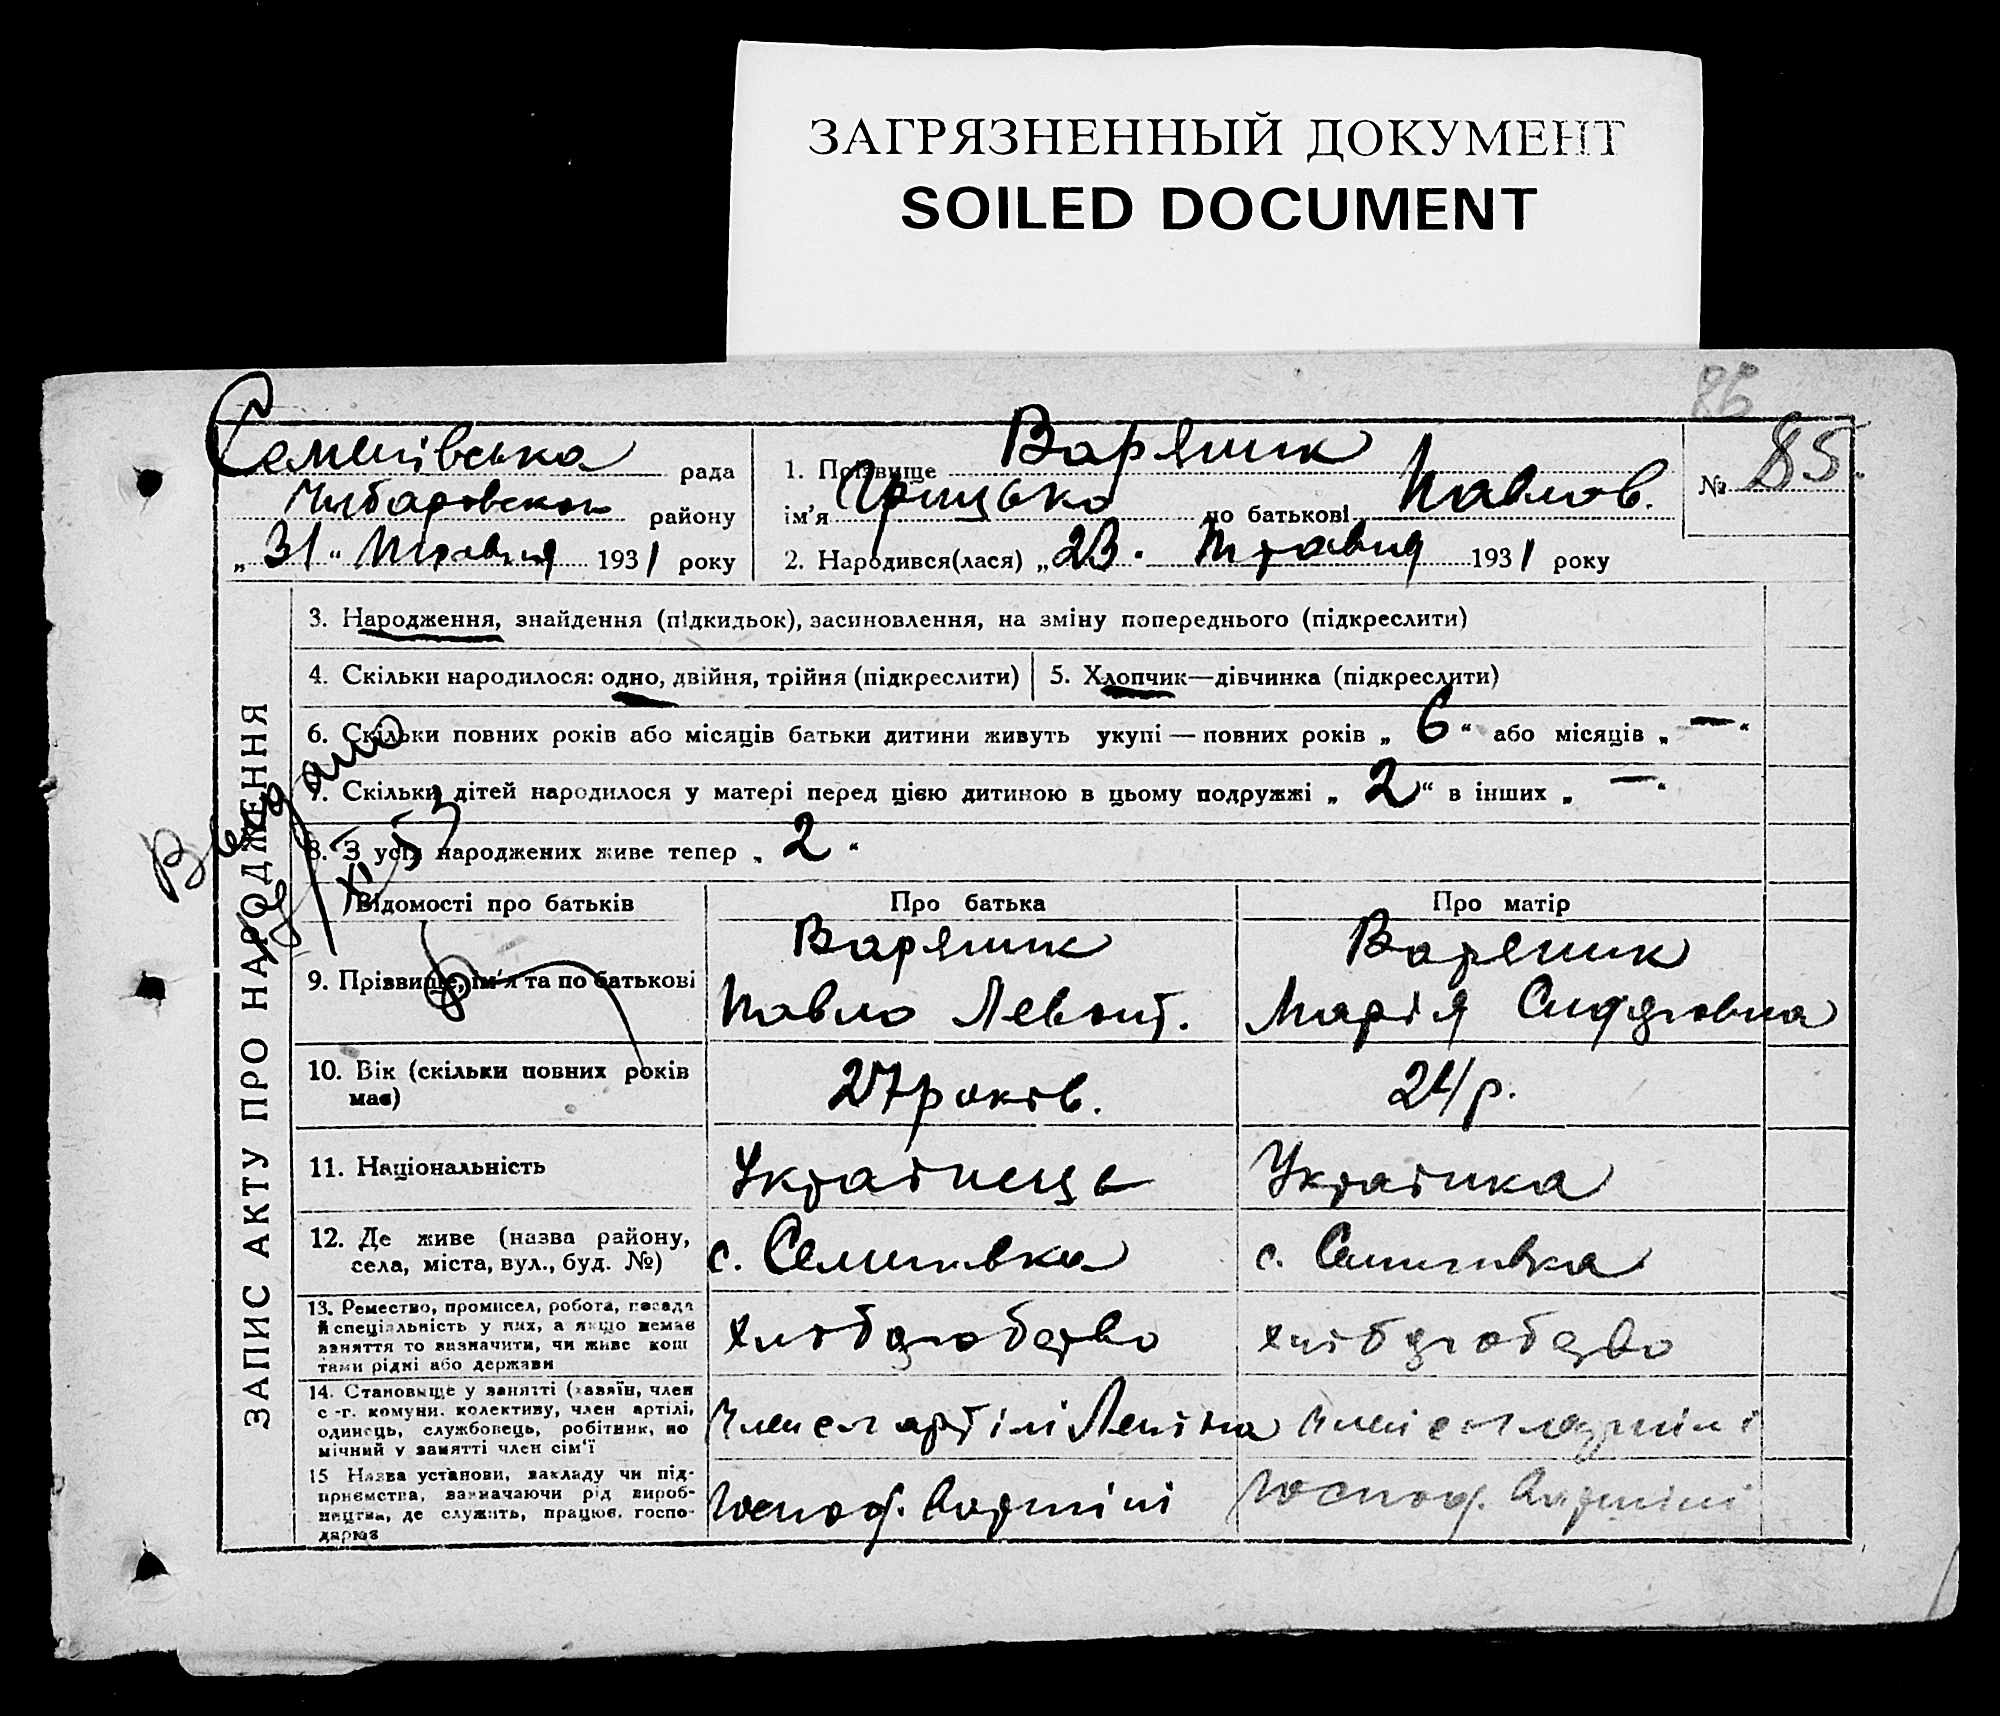 ЗАГРЯЗНЕННЫЙ ДОКУМЕНТ
SOILED DOCUMENT
86
Семенівська рада
району
„31“ Травня 1931 року
1. Прізвище Варяник
ім’я Грицько по батькові Павлов.
2. Народився(лася) „23. Травня 1931 року
№ 85
ЗАПИС АКТУ ПРО НАРОДЖЕННЯ
3. Народження, знайдення (підкидьок), засиновлення, на зміну попереднього (підкреслити)
4. Скільки народилося: одно, двійня, трійня (підкреслити)
5. Хлопчик—дівчинка (підкреслити)
6. Скільки повних років або місяців батьки дитини живуть укупі — повних років „ 6 “ або місяців „ — “
7. Скільки дітей народилося у матері перед цією дитиною в цьому подружжі „ 2 “ в інших „ — “
8. З усіх народжених живе тепер „ 2 “
Відомості про батьків
Про батька
Про матір
9. Прізвище, ім’я та по батькові
Варяник
Павло Левонт.
Варяник
Марія
10. Вік (скільки повних років
має)
27 років.
24 р.
11. Національність
Українець
Українка
12. Де живе (назва району,
села, міста, вул., буд. №)
с. Семенівка
с. Семенівка
13. Ремество, промисел, робота, посада
й спеціяльність у них, а якщо немає
заняття то визначити, чи живе кош
тами рідні або держави
хліборобство
хліборобство
14. Становище у занятті (хазяїн, член
с.-г. комуни, колективу, член артілі,
одинець, службовець, робітник, по
мічний у занятті член сім’ї
Член с г артілі Леніна
член с г артілі
15 Назва установи, закладу чи під-
приємства, зазначаючи рід вироб-
ництва, де служить, працює, госпо-
дарює
Господ. в артілі
Господ. в артілі